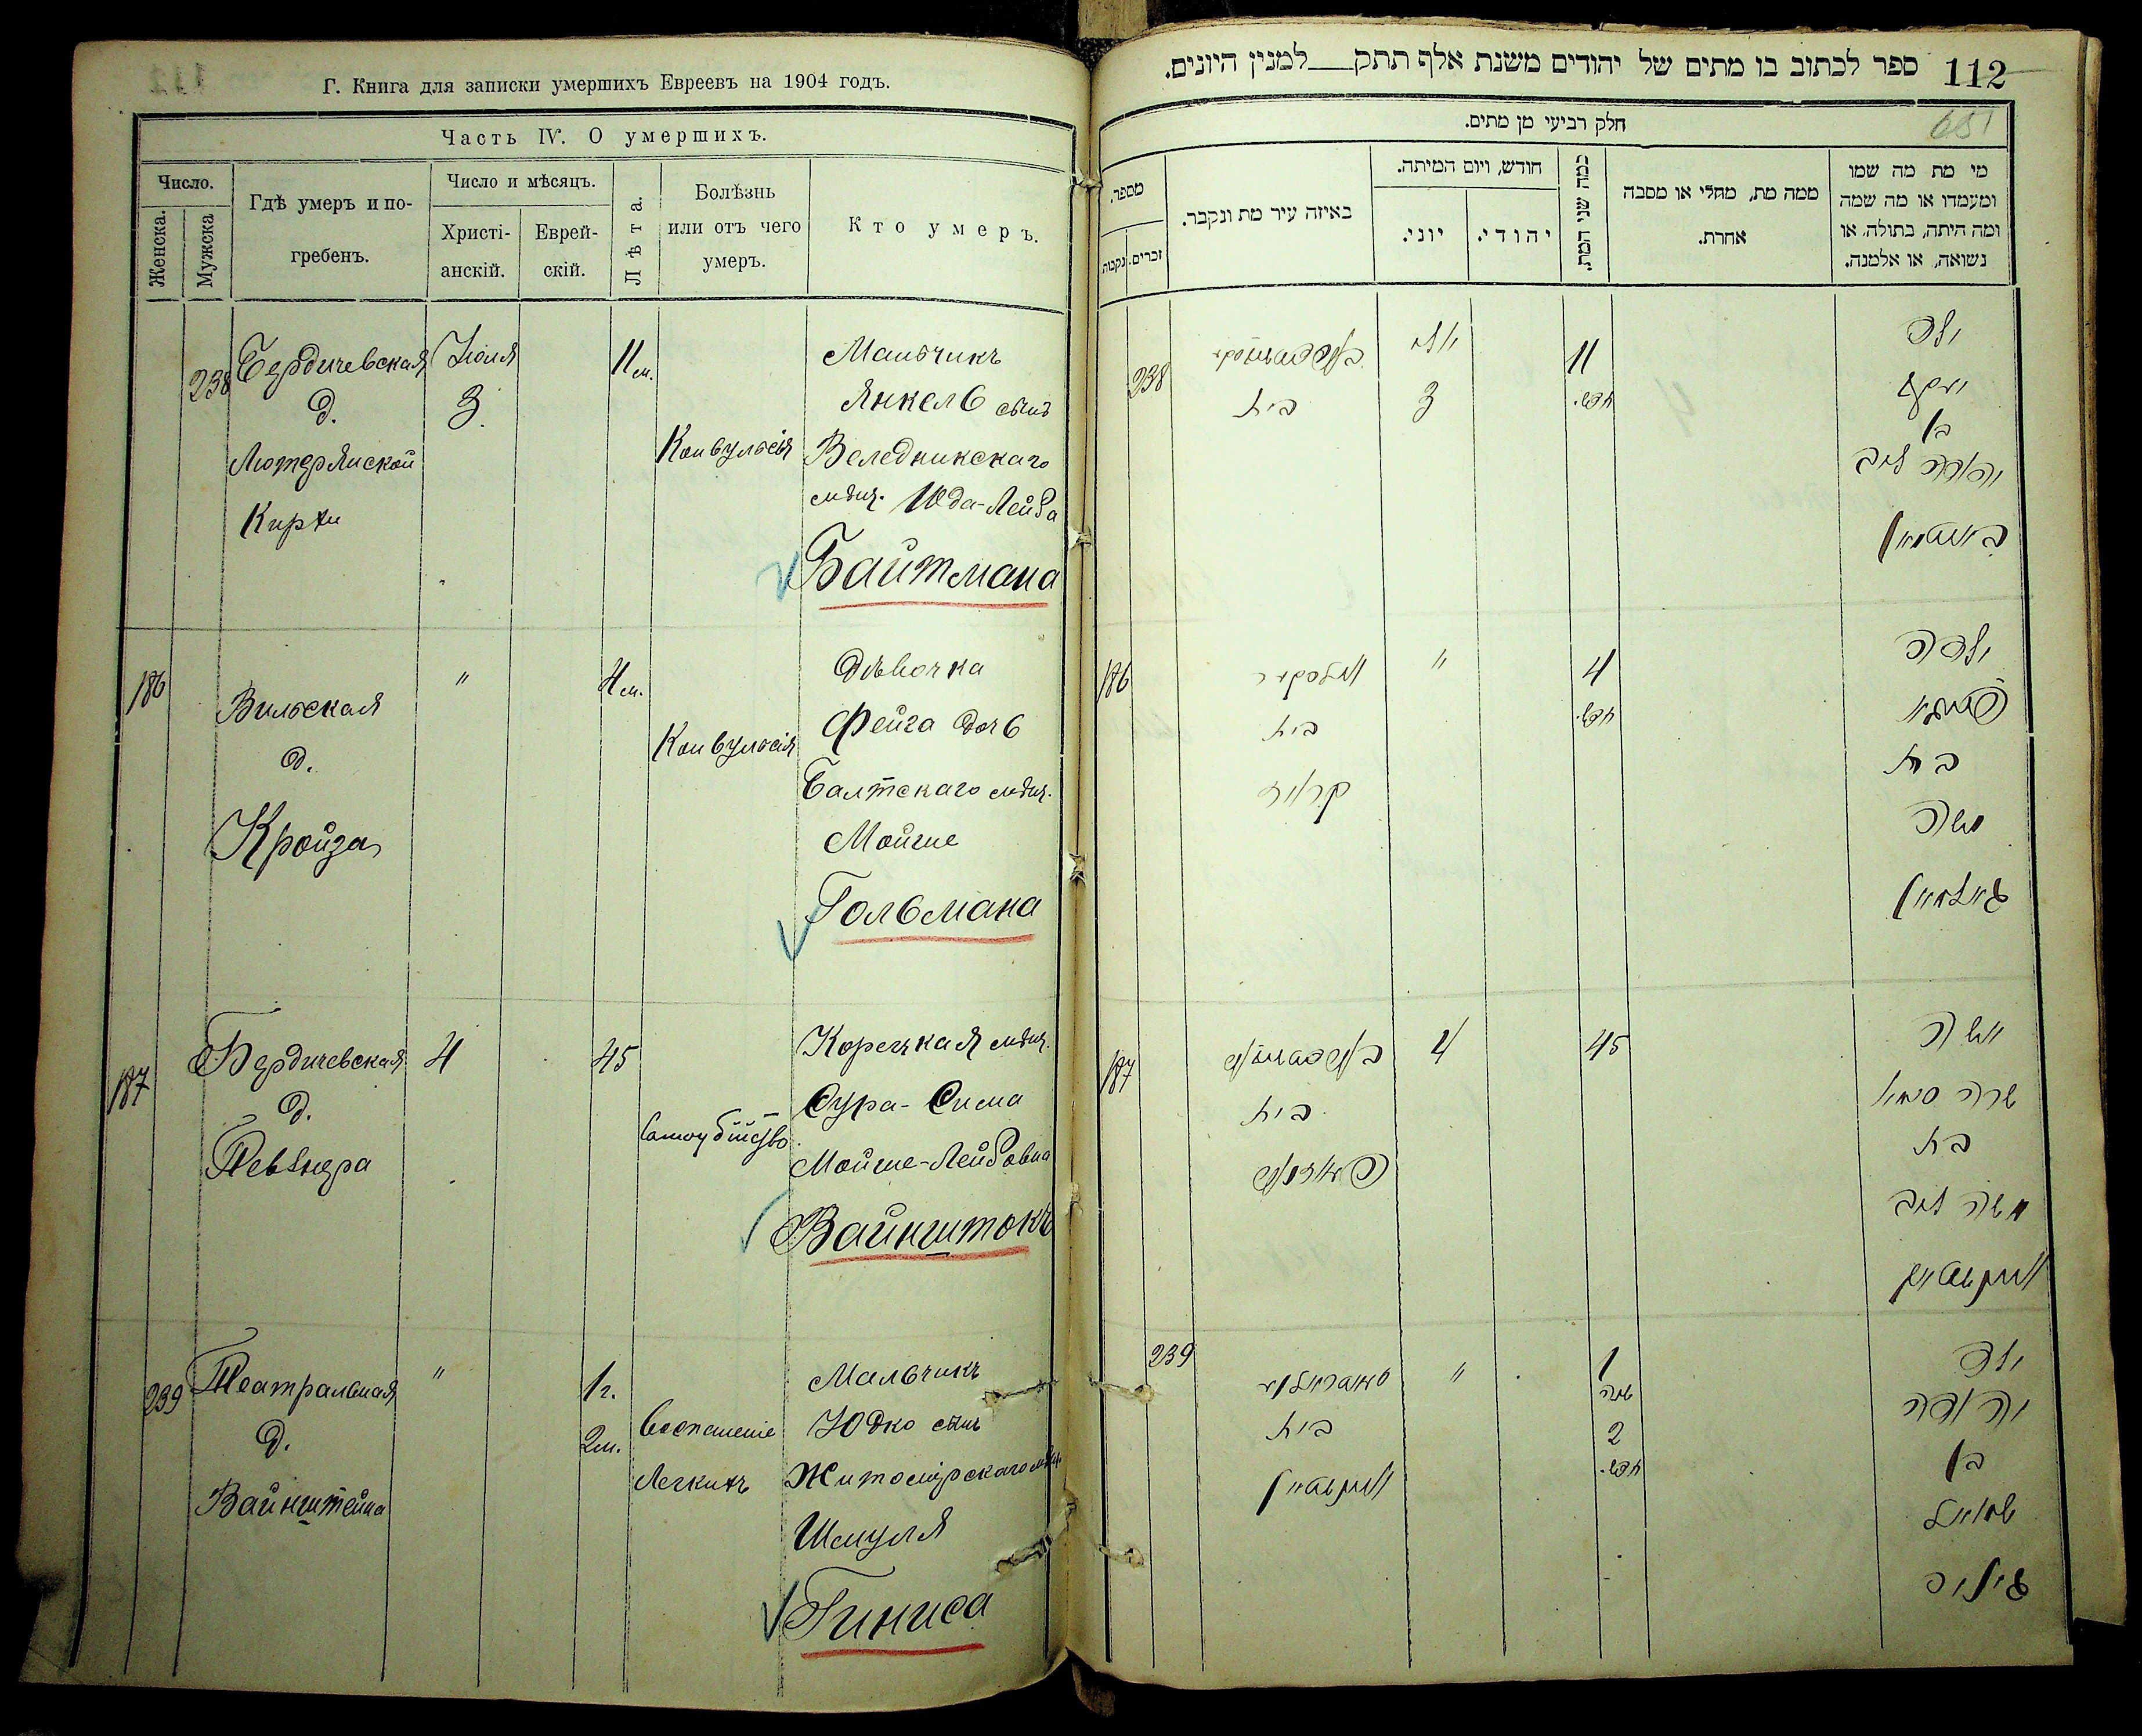 Г. Книга для записки умершихъ Евреевъ на 1904 годъ.
Часть IV. О умершихъ.
Число.
Женска.
Мужска
Гдѣ умеръ и по-
гребенъ.
Число и мѣсяцъ.
Христі-
анскій.
Еврей-
скій.
Лѣта.
Болѣзнь
или отъ чего
умеръ.
Кто умеръ.
238
Бердичевская
д.
Лютерянской
Кирхи
Юля
3.
11 м.
Конвульсія
Мальчикъ
Янкель сынъ
Веледникскаго
мѣщ. Юда-Лейба
Байтмана
186
Вильская
д.
Кройза
"
4 м.
Конвульсія
Дѣвочка
Фейга дочь
Балтскаго мѣщ.
Мойше
Гольмана
187
Бердичевская
д.
Певзнера
4
45
Самоубійство
Корецкая мѣщ.
Сура-Сима
Мойше-Лейбовна
Вайнштокъ
239
Театральная
д.
Вайнштейна
"
1 г.
2 м.
Воспаленіе
Легкихъ
Мальчикъ
Юдко сынъ
Житомірскаго мѣщ.
Шмуля
Гиниса
ספר לכתוב בו מתים של יהודים משנת אלף תתק__למנין היונים.
112
651
חלק רביעי מן מתים.
מספר.
נקבות
זכרים.
באיזה עיר מת ונקבר.
חודש, ויום המיתה.
יוני.
יהודי.
כמה שני המת.
ממה מת, מחלי או מסבה
אחרת.
מי מת מה שמו
ומעמדו או מה שמה
ומה היתה, בתולה, או
נשואה, או אלמנה.
238
בית
יולי
3
11
חדש.
ילד
יעקב
בן
יהודה ליב
בייטמאן
186
בית
קרויז
"
4
חדש.
ילדה
פייגא
בת
משה
גאלמאן
187
בית
פעווזנער
4
45
אשה
שרה סימא
בת
משה ליב
וויינשטאק
239
בית
וויינשטיין
"
1
שנה
2
חדש.
ילד
יהודה
בן
שמואל
גיניס